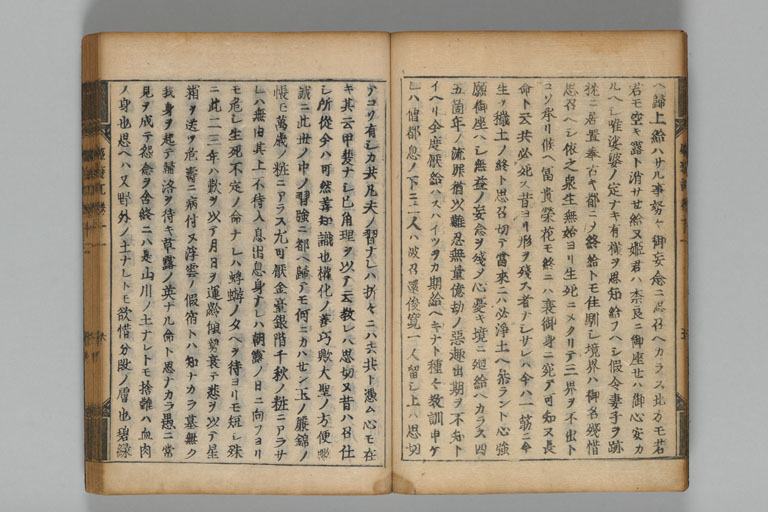 ヘ歸上給ハサル事努々御妄念ニ思召ヘカラス北方モ若
君モ空キ露ト消サせ給ヌ姫君ハ奈良ニ御座せハ御心安カ
ルヘシ唯娑婆ノ定ナキ有様ヲ思知給フヘシ假令妻子ヲ跡
枕ニ居置奉テ古キ都ニメ終給トモ住馴シ境界ハ御名殘惜
思召ヘシ依之衆生無始ヨリ生死ニメクリテ三界ヲ不出ト
コソ承リ候ヘ冨貴榮花モ終ニハ衰御身ニ宛テ可知又長
命ト云共必死ス昔ヨリ形ヲ殘ス者ナシサレハ今ハ一筋ニ今
生ヲ穢土ノ終ト思召切テ當來ニハ必淨土ヘ参ラント心強
願御座ヘシ無益ノ妄念ヲ殘メ心憂キ境ニ廻給ヘカラス四
五箇年ノ流罪猶以難忍無量億劫ノ惡趣出期ヲ不知ト
イヘリ今度厭給ハスハイツヲカ期給ヘキナト種々教訓申ケ
レハ僧都息ノ下ニ二人ハ被召還俊寛一人留シ上ハ思切
テコソ有シカ共凡夫ノ習ナレハ折々ニハ去共ト憑ム心モ在
キ其云甲斐ナシ已角理ヲ以テ云教レハ思切ヌ昔ハ召仕
シ所從今ハ可然善知識也權化ノ善巧歟大聖ノ方便歟
誠ニ此世ノ中ノ習強ニ都ヘ歸テモ何ニカハせン玉ノ簾錦ノ
帳モ萬歳ノ粧ニアラス尤可厭金臺銀階千秋ノ粧ニアラサ
レハ無由其上不待入息出息身ナレハ朝露ノ日ニ向フヨリ
モ危シ生死不定ノ命ナレハ蜉蝣ノタヘヲ待ヨリモ短シ殊
ニ此二三年ハ歎ヲ以テ月日ヲ運齢傾勢衰テ悲ヲ以テ星
霜ヲ送ヲ危壽ニ病付ヌ浮雲ノ假宿トハ知ナカラ墓無ク
我身ヲ起テ歸洛ヲ待キ草露ノ英ナル命ト思ナカラ愚ニ常
見ヲ成テ怨念ヲ含終ニハ是山川ノ土ナレトモ捨難ハ血肉
ノ身也思ヘハ又野外ノ土ナレトモ欲惜分段ノ膚也碧緑